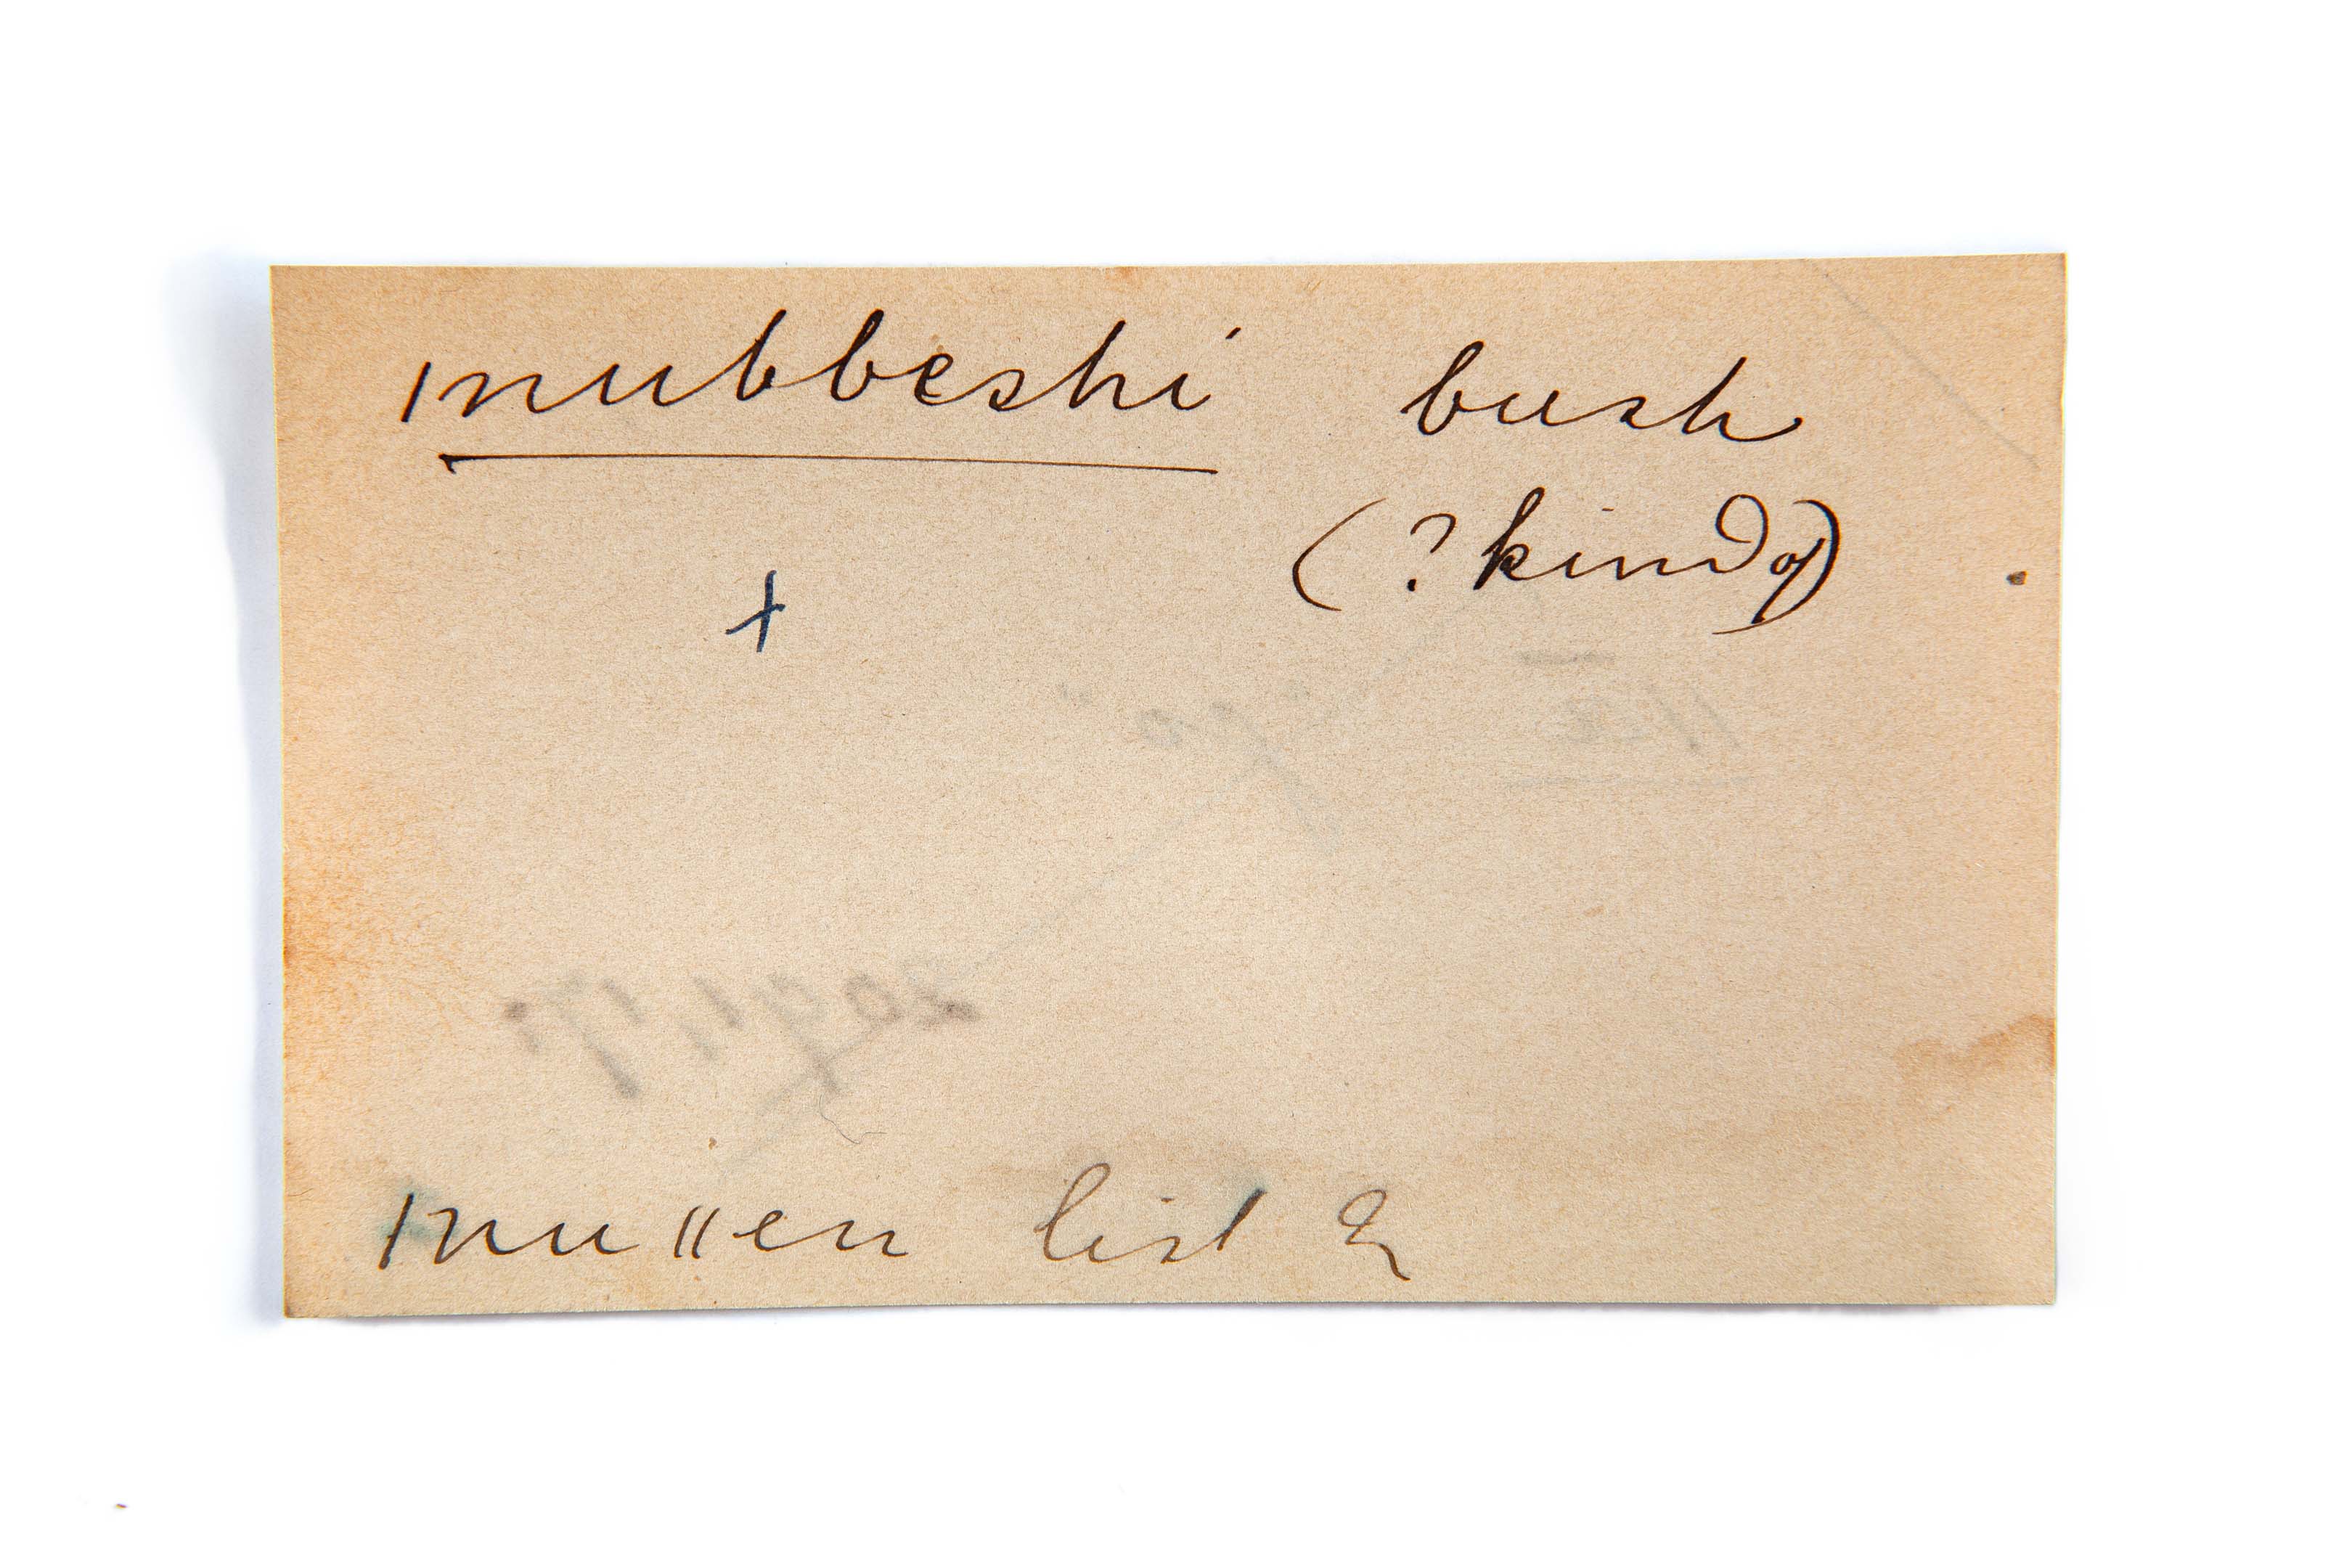 mubbeshi bush
(? kind of)
+
mullen list 2